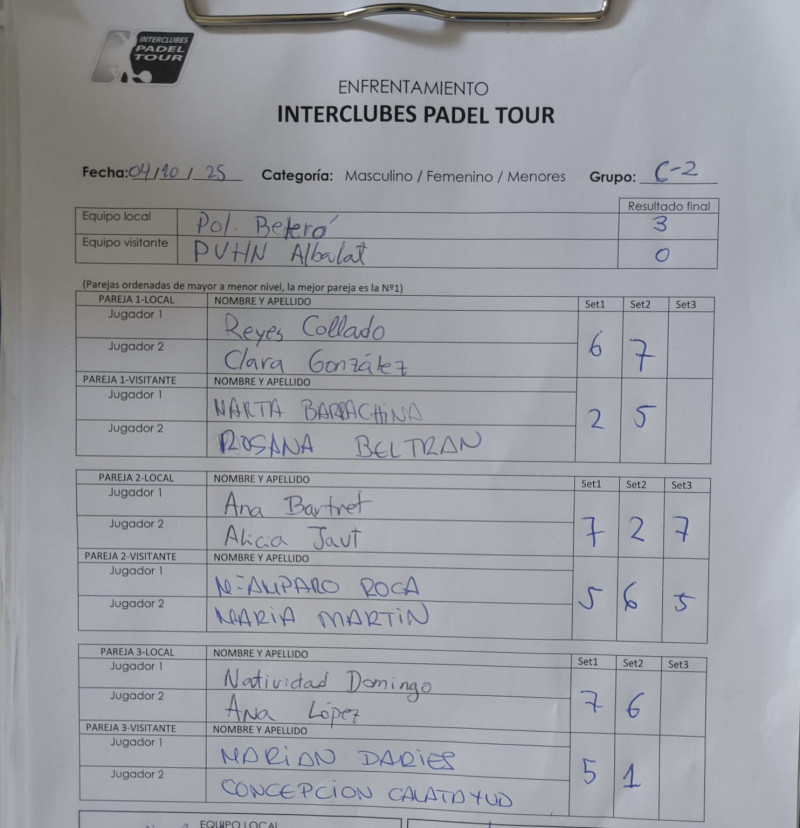 INTERCLUBES
PADEL
TOUR
ENFRENTAMIENTO
INTERCLUBES PADEL TOUR
Fecha: 04/10/25 Categoría: Masculino / Femenino / Menores Grupo: C-2
Resultado final
Equipo local Pol. Beteró 3
Equipo visitante PVHN Albalat 0
(Parejas ordenadas de mayor a menor nivel, la mejor pareja es la Nº1)
PAREJA 1-LOCAL NOMBRE Y APELLIDO Set1 Set2 Set3
Jugador 1 Reyes Collado
Jugador 2 Clara González
6 7
PAREJA 1-VISITANTE NOMBRE Y APELLIDO
Jugador 1 MARTA BARRACHINA
Jugador 2 ROSANA BELTRAN
2 5
PAREJA 2-LOCAL NOMBRE Y APELLIDO Set1 Set2 Set3
Jugador 1 Ana Bartret
Jugador 2 Alicia Jaut
7 2 7
PAREJA 2-VISITANTE NOMBRE Y APELLIDO
Jugador 1 Mª AMPARO ROCA
Jugador 2 MARIA MARTIN
5 6 5
PAREJA 3-LOCAL NOMBRE Y APELLIDO Set1 Set2 Set3
Jugador 1 Natividad Domingo
Jugador 2 Ana López
7 6
PAREJA 3-VISITANTE NOMBRE Y APELLIDO
Jugador 1 MARIAN DARIES
Jugador 2 CONCEPCION CALATAYUD
5 1
EQUIPO LOCAL